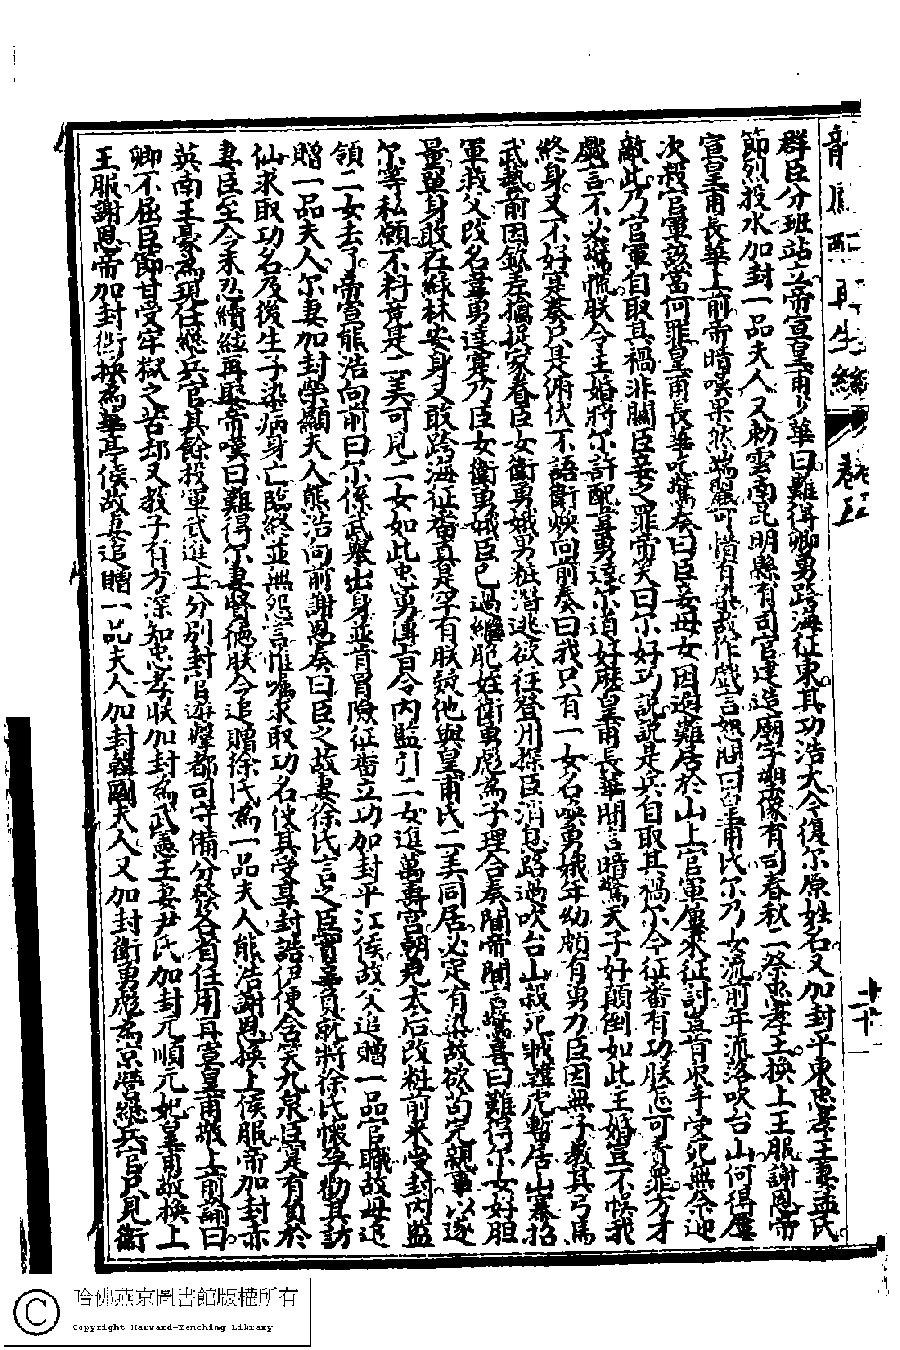 龍鳳配再生緣 卷五 二十
群臣分班站立帝宣皇甫少華曰難得卿勇跨海征東其功浩大今復尔原姓名又加封平東忠孝王妻孟氏
節烈投水加封一品夫人又勅雲南昆明縣有司官建造廟宇塑像有司春秋二祭忠孝王换上王服謝恩帝
宣皇甫長華上前帝暗嘆果然端麗可惜有染哉作戲言怒聞曰皇甫氏尔乃女流前年流落吹台山何得屢
次殺官軍該當何罪皇甫長華吃驚奏曰臣妾母女因退難居於山上官軍屢來征討豈肯束手受死無奈迎
敵此乃官軍自取其禍非關臣妾之罪帝笑曰尔好巧說說是兵自取其禍尔今征番有功朕怎可責罪方才
戲言不必驚慌朕今主婚將尔許配韋勇達尔道好麽皇甫長華聞言暗驚天子好顛倒如此主婚豈不悞我
終身又不好寔奏只是俯伏不語衛焕向前奏曰我只有一女名喚勇娥年幼頗有勇力臣因無子教其弓馬
武藝前因欽差擒捉家眷臣女衛勇娥男粧潜逃欲往登州探臣消息路過吹台山殺死賊韓虎暫居山寨招
軍救父改名韋勇達寔乃臣女衛勇娥臣已過繼胞姪衛勇彪為子理合奏聞帝聞言驚喜曰難得尔女好胆
量單身敢在綠林安身又敢跨海征番真是罕有朕疑他與皇甫氏二美同居必定有染故欲勾完親事以遂
尔等私願不料竟是二美可見二女如此忠勇傳旨令内監引二女進萬壽宮朝見太后改粧前來受封内監
領二女去了帝宣熊浩向前曰尔係武舉出身並肯冒險征番立功加封平江侯故父追贈一品官職故母追
贈一品夫人尔妻加封榮顯夫人熊浩向前謝恩奏曰臣之故妻徐氏言之臣實辜負就將徐氏懷孕勸其訪
仙求取功名及後生子染病身亡臨終並無怨言惟囑求取功名使其受尊封誥伊便含笑九泉臣寔有負於
妻臣至今未忍續絃再娶帝嘆曰難得尔妻賢德朕今追贈徐氏為一品夫人熊浩謝恩换上侯服帝加封赤
英南王豪為現任總兵官其餘投軍武進士分別封官遊擊都司守備分發各省任用再宣皇甫敬上前諭曰
卿不屈臣節甘受牢獄之苦却又教子有方深知忠孝朕加封為武憲王妻尹氏加封元順元妃皇甫敬换上
王服謝恩帝加封衛焕為華亭侯故妻追贈一品夫人加封韓國夫人又加封衛勇彪為京營總兵官只見衛
哈佛燕京圖書館版權所有
Copyright Harvard-Yenching Library